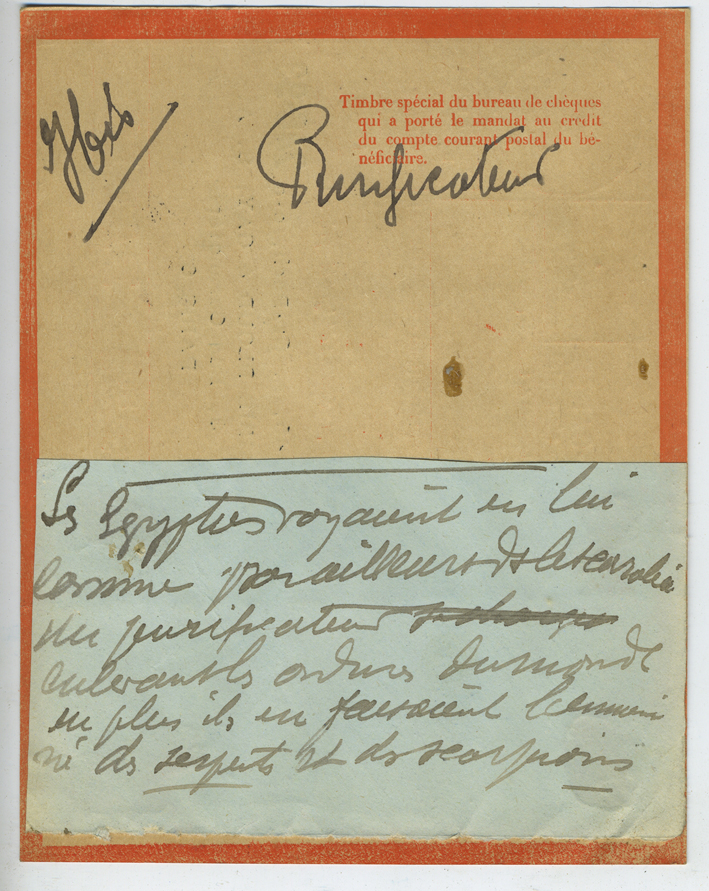 Ibis
Timbre spécial du bureau de chèques
qui a porté le mandat au crédit
du compte courant postal du bé-
néficiaire.
Purificateur
Les Egyptiens voyaient en lui
comme par ailleurs
un purificateur
enlevant les ordures du monde
en plus ils en faisaient l'ennemi
né des serpents et des scorpions